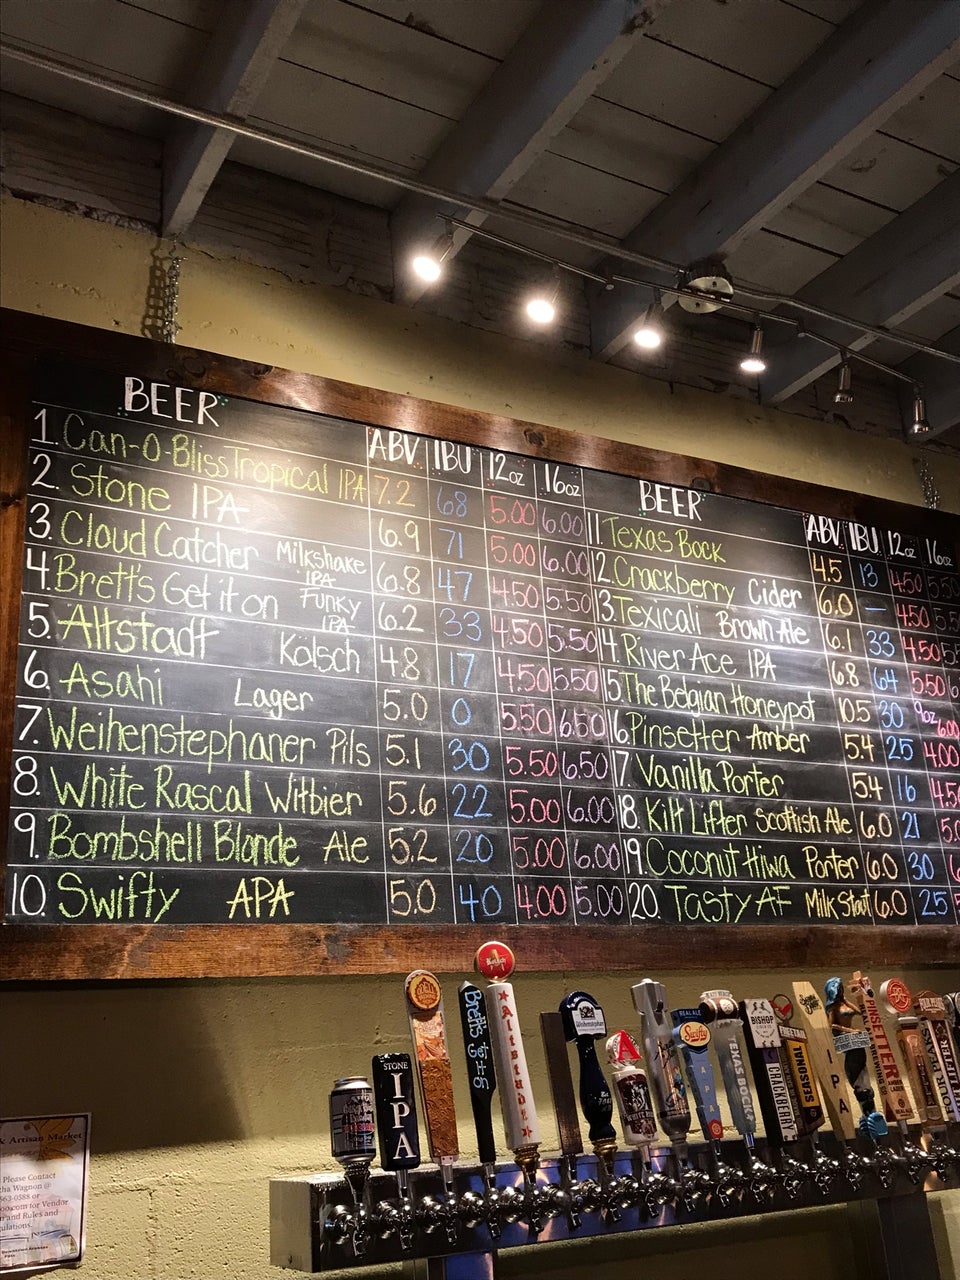 BEER ABV IBU 12oz 16oz
1. Can-O-Bliss Tropical IPA 7.2 68 5.00 6.00
2. Stone IPA 6.9 71 5.00 6.00
3. Cloud Catcher Milkshake IPA 6.8 47 4.50 5.50
4. Brett's Get it on Funky IPA 6.2 33 4.50 5.50
5. Altstadt Kölsch 4.8 17 4.50 5.50
6. Asahi Lager 5.0 0 5.50 6.50
7. Weihenstephaner Pils 5.1 30 5.50 6.50
8. White Rascal Witbier 5.6 22 5.00 6.00
9. Bombshell Blonde Ale 5.2 20 5.00 6.00
10. Swifty APA 5.0 40 4.00 5.00
BEER ABV IBU 12oz 16oz
11. Texas Bock 4.5 13 4.50 5.50
12. Crackberry Cider 6.0 – 4.50
13. Texicali Brown Ale 6.1 33 4.50
14. River Ace IPA 6.8 64 5.50
15. The Belgian Honeypot 10.5 30 9oz 6.00
16. Pinsetter Amber 5.4 25 4.00
17. Vanilla Porter 5.4 16
18. Kilt Lifter Scottish Ale 6.0 21
19. Coconut Hiwa Porter 6.0 30
20. Tasty AF Milk Stout 6.0 25
STONE
IPA
Brett's Get it
Kölsch
Altstadt
Weihenstephaner
A
WHITE
REAL ALE
Swifty
APA
TEXAS BOCK
BISHOP
CRACKBERRY
SEASONAL
IPA
PINSETTER
FOUR PEAKS
& Artisan Market
Please Contact
Wagnon @
563-0588 or
.com for Vendor
and Rules and